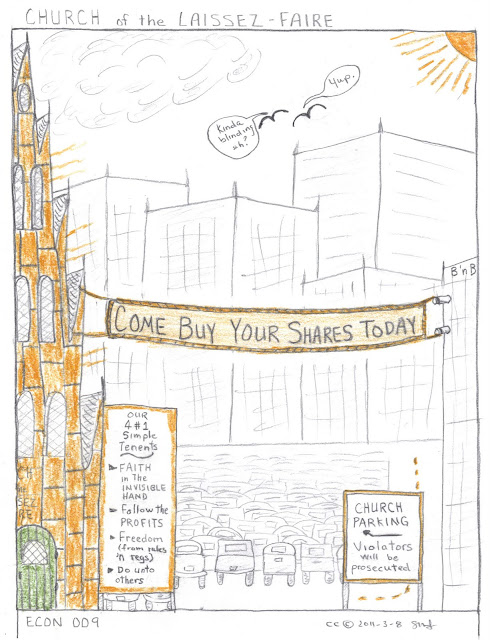 CHURCH of the LAISSEZ-FAIRE
Yup.
Kinda
blinding
eh?
B'nB
COME BUY YOUR SHARES TODAY
OUR
4 #1
Simple
Tenents
FAITH
in the
INVISIBLE
HAND
Follow the
PROFITS
Freedom
(from rules
'n regs)
Do unto
others
CHURCH
PARKING
Violators
will be
prosecuted
ECON 009
cc © 2011-3-8